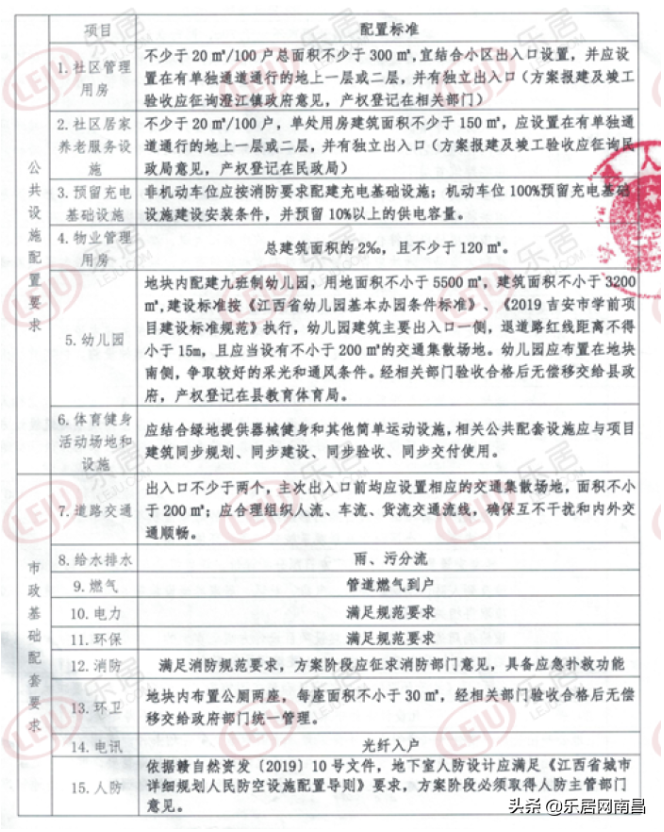 项目 配置标准
公共设施配置要求
1.社区管理用房
不少于20㎡/100户总面积不少于300㎡,宜结合小区出入口设置，并应设
置在有单独通道通行的地上一层或二层，并有独立出入口（方案报建及竣工
验收应征询澄江镇政府意见，产权登记在相关部门）
2.社区居家养老服务设施
不少于20㎡/100户，单处用房建筑面积不少于150㎡，应设置在有单独通
道通行的地上一层或二层，并有独立出入口（方案报建及竣工验收应征询民
政局意见，产权登记在民政局）
3.预留充电基础设施
非机动车位应按消防要求配建充电基础设施；机动车位100%预留充电基础
设施建设安装条件，并预留10%以上的供电容量。
4.物业管理用房
总建筑面积的2‰，且不少于120㎡。
5.幼儿园
地块内配建九班制幼儿园，用地面积不小于5500㎡，建筑面积不小于3200
㎡,建设标准按《江西省幼儿园基本办园条件标准》、《2019吉安市学前项
目建设标准规范》执行，幼儿园建筑主要出入口一侧，退道路红线距离不得
小于15m，且应当设有不小于200㎡的交通集散场地。幼儿园应布置在地块
南侧，争取较好的采光和通风条件。经相关部门验收合格后无偿移交给县政
府，产权登记在县教育体育局。
6.体育健身活动场地和设施
应结合绿地提供器械健身和其他简单运动设施,相关公共配套设施应与项目
建筑同步规划、同步建设、同步验收、同步交付使用。
市政基础配套要求
7.道路交通
出入口不少于两个，主次出入口前均应设置相应的交通集散场地，面积不小
于200㎡；应合理组织人流、车流、货流交通流线，确保互不干扰和内外交
通顺畅。
8.给水排水 雨、污分流
9.燃气 管道燃气到户
10.电力 满足规范要求
11.环保 满足规范要求
12.消防 满足消防规范要求，方案阶段应征求消防部门意见，具备应急扑救功能
13.环卫
地块内布置公厕两座，每座面积不小于30㎡，经相关部门验收合格后无偿
移交给政府部门统一管理。
14.电讯 光纤入户
15.人防
依据赣自然资发〔2019〕10号文件，地下室人防设计应满足《江西省城市
详细规划人民防空设施配置导则》要求，方案阶段必须取得人防主管部门
意见。
头条@乐居网南昌